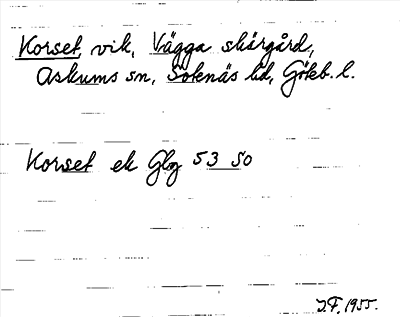 Korset, vik, Vägga skärgård,
Askums sn, Sotenäs hd, Göteb. l.
Korset ek Glog 53 SO
J.F. 1955.